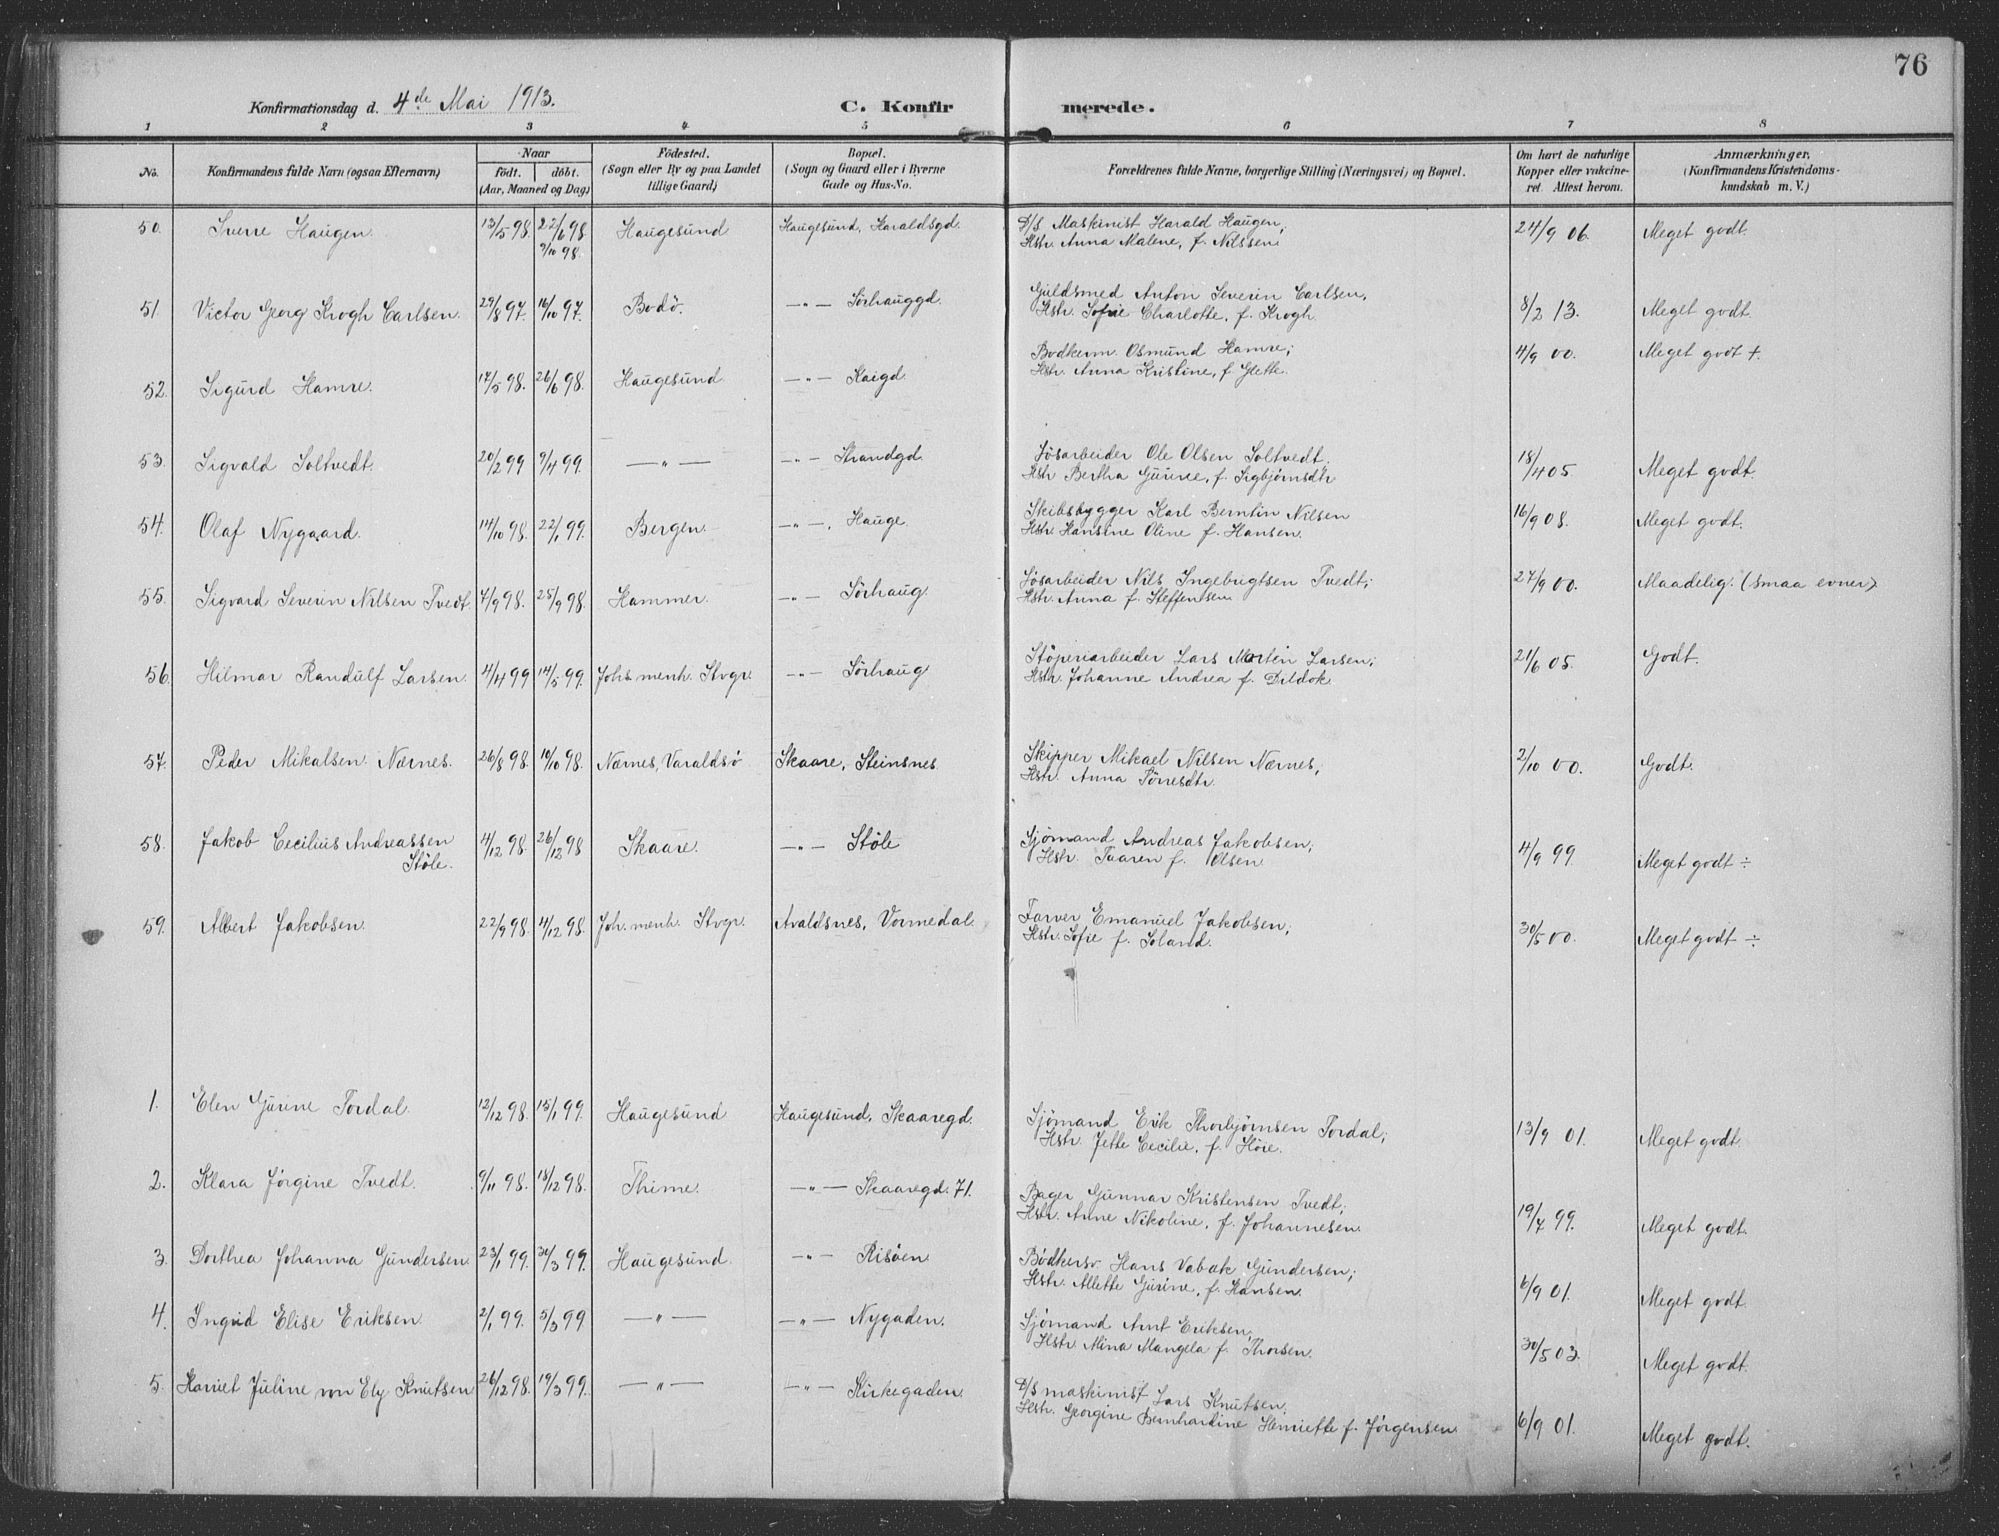 76
Konfirmationsdag d. 4de Mai 1913.
C. Konfirmerede.
1 2 3 4 5 6 7 8
No. Konfirmandens fulde Navn (ogsaa Efternavn) Naar födt. döbt. (Aar, Maaned og Dag) Födested. (Sogn eller By og paa Landet tillige Gaard) Bopæl. (Sogn og Gaard eller i Byerne Gade og Hus-No. Forældrenes fulde Navne, borgerlige Stilling (Næringsvei) og Bopæl. Om havt de naturlige Kopper eller vakcineret. Attest herom. Anmærkninger. (Konfirmandens Kristendomskundskab m. V.)
50. Sverre Haugen. 13/5 98. 22/6 98. 9/10 98. Haugesund Haugesund, Haraldsgd. D/S Maskinist Harald Haugen, 24/9 06. Meget godt.
Hstr. Anna Malene, f. Nilssen.
51. Victor Georg Krogh Carlsen. 29/8 97. 16/10 97. Bodö. —"— Sörhauggd. Guldsmed Anton Severin Carlsen, 8/2 13. Meget godt.
Hstr. Sofie Charlotte, f. Krogh.
52. Sigurd Hamre. 17/5 98. 26/6 98. Haugesund —"— Kaigd. Bödkerm. Osmund Hamre; 4/9 00. Meget godt +
Hstr. Anna Kristine, f. Glette.
53. Sigvald Soltvedt. 20/2 99 9/4 99. —"— —"— Strandgd. Jösarbeider Ole Olsen Soltvedt, 18/4 05. Meget godt.
Hstr Bertha Gurine, f. Sigbjørnsdtr
54. Olaf Nygaard. 14/10 98. 22/1 99. Bergen. —"—, Hauge. Skibsbygger Karl Berntin Nilsen 16/9 08. Meget godt.
Hstr. Hansine Oline f. Hansen.
55. Sigvard Severin Nilsen Tvedt. 4/9 98. 25/9 98. Hammer. —"— Sörhaug. Jösarbeider Nils Ingebrigtsen Tvedt; 27/9 00. Maadelig. (smaa evner)
Hstr. Anna f. Steffensen
56. Hilmar Randulf Larsen. 4/4 99 14/5 99. Johs. menh. Stvgr. —"— Sörhaug Stöperiarbeider Lars Martin Larsen; 21/6 05. Godt.
Hstr. Johanne Andrea f. Dildok
57. Peder Mikalsen Nærnes. 26/8 98. 19/10 98. Nærnes, Varaldsö Skaare, Steinsnes. Skipper Mikael Nilsen Nærnes, 2/10 00. Godt.
Hstr. Anna Tørresdtr.
58. Jakob Cecilius Andreassen Stöle. 4/12 98. 26/12 98 Skaare. —"— Stöle Sjömand Andreas Jakobsen; 4/9 99. Meget godt ÷
Hstr. Taaren f. Olsen.
59. Albert Jakobsen. 22/9 98. 4/12 98. Joh. menh. Stvgr. Avaldsnes, Vormedal. Farver Emanuel Jakobsen; 30/5 00. Meget godt ÷
Hstr. Sofie f. Soland.
1. Elen Gurine Tordal. 12/12 98. 15/1 99. Haugesund Haugesund, Skaaregd. Sjömand Erik Thorbjørnsen Tordal; 13/9 01. Meget godt.
Hstr. Jette Cecilie, f. Höie.
2. Klara Jørgine Tvedt. 9/11 98. 18/12 98. Thime. —"— Skaaregd. 71. Bager Gunnar Kristensen Tvedt; 19/7 99. Meget godt.
Hstr. Anne Nikoline, f. Johannesen.
3. Dorthea Johanna Gundersen 23/1 99. 31/3 99. Haugesund. —"— Risöen. Bödkersv. Hans Vabak Gundersen; 6/9 01. Meget godt.
Hstr. Allette Gurine, f. Hansen.
4. Ingrid Elise Eriksen. 2/1 99. 5/3 99 —"— —"— Nygaden. Sjömand Arnt Eriksen, 30/5 03. Meget godt.
Hstr. Mina Mangela f. Thorsen.
5. Hariet Juline von Ely Knutsen 26/12 98. 19/3 99. —"— —"— Kirkegaden. D/S maskinist Lars Knutsen. 6/9 01. Meget godt.
Hstr. Georgine Bernhardine Henriette f. Jørgensen.